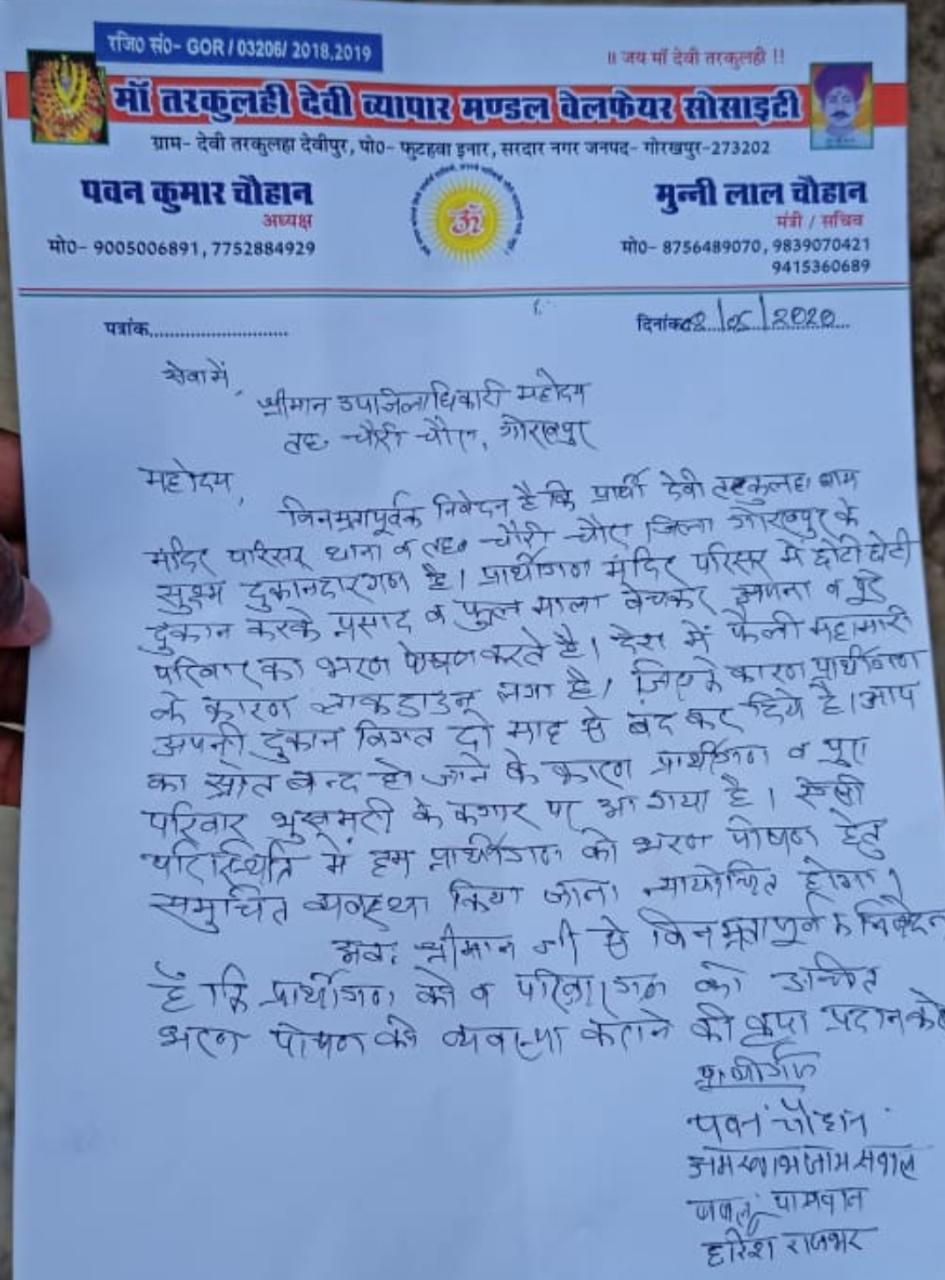 रजि0 सं0- GOR / 03206/ 2018.2019
॥ जय माँ देवी तरकुलही !!
माँ तरकुलही देवी व्यापार मण्डल वेलफेयर सोसाइटी
ग्राम- देवी तरकुलहा देवीपुर, पो0- फुटहवा इनार, सरदार नगर जनपद- गोरखपुर-273202
पवन कुमार चौहान
अध्यक्ष
मो0- 9005006891, 7752884929
ॐ
मुन्नी लाल चौहान
मंत्री / सचिव
मो0- 8756489070, 9839070421
9415360689
पत्रांक............................
दिनांक 02/05/2020
सेवा में,
श्रीमान उपजिलाधिकारी महोदय
तह0 चौरी चौरा, गोरखपुर
महोदय,
विनम्रतापूर्वक निवेदन है कि प्रार्थी देवी तरकुलहा धाम
मंदिर परिसर थाना व तह0 चौरी चौरा जिला गोरखपुर के
सुक्ष्म दुकानदारगण है। प्रार्थीगण मंदिर परिसर में छोटी छोटी
दुकान करके प्रसाद व फुल माला बेचकर अपना व पुरे
परिवार का भरण पोषण करते है। देश में फैली महामारी
के कारण लाकडाउन लगा है। जिसके कारण प्रार्थीगण
अपनी दुकान विगत दो माह से बंद कर दिये है। आय
का स्रोत बन्द हो जाने के कारण प्रार्थीगण व पुरा
परिवार भुखमरी के कगार पर आ गया है। ऐसी
परिस्थिति में हम प्रार्थीगण को भरण पोषण हेतु
समुचित व्यवस्था किया जाना न्यायोचित होगा।
अतः श्रीमान जी से विनम्रतापूर्वक निवेदन
है कि प्रार्थीगण को व परिवारगण को उचित
भरण पोषण की व्यवस्था कराने की कृपा प्रदान करे
प्रार्थीगण
पवन चौहान
जायसवाल
पासवान
हरिश राजभर